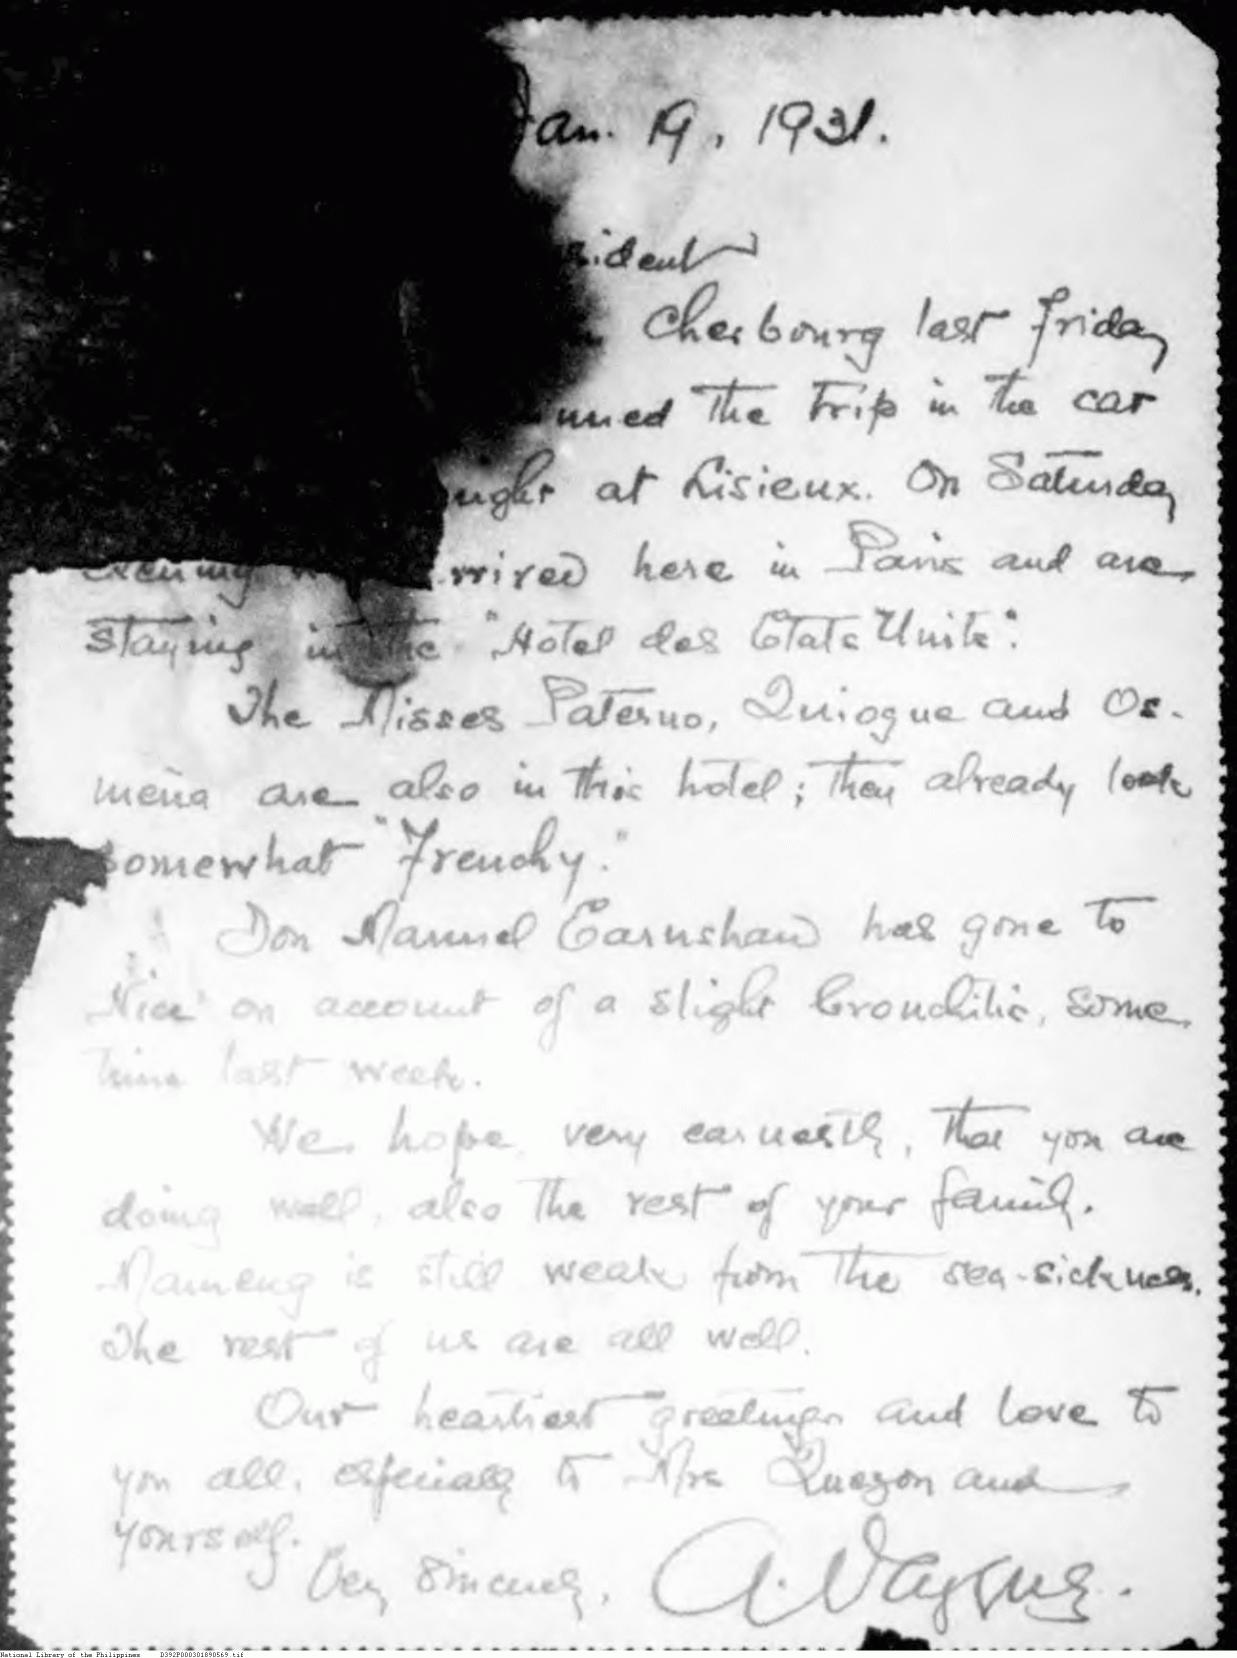 Jan. 19, 1931.
sident
Cherbourg last Friday
nued the trip in the car
ught at Lisieux. On Saturday
evening rrived here in Paris and are
staying in the "Hotel des Etats Unis".
The Misses Paterno, Quiogue and Os-
meña are also in this hotel; they already look
somewhat "Frenchy."
Don Manuel Earnshaw has gone to
Nice on account of a slight bronchitis, some
time last week.
We hope, very earnestly, that you are
doing well, also the rest of your family.
Mameng is still weak from the sea-sickness.
The rest of us are all well.
Our heartiest greetings and love to
you all, especially to Mrs Quezon and
yourself.
Very Sincerely,
National Library of the Philippines D392P000301890569.tif